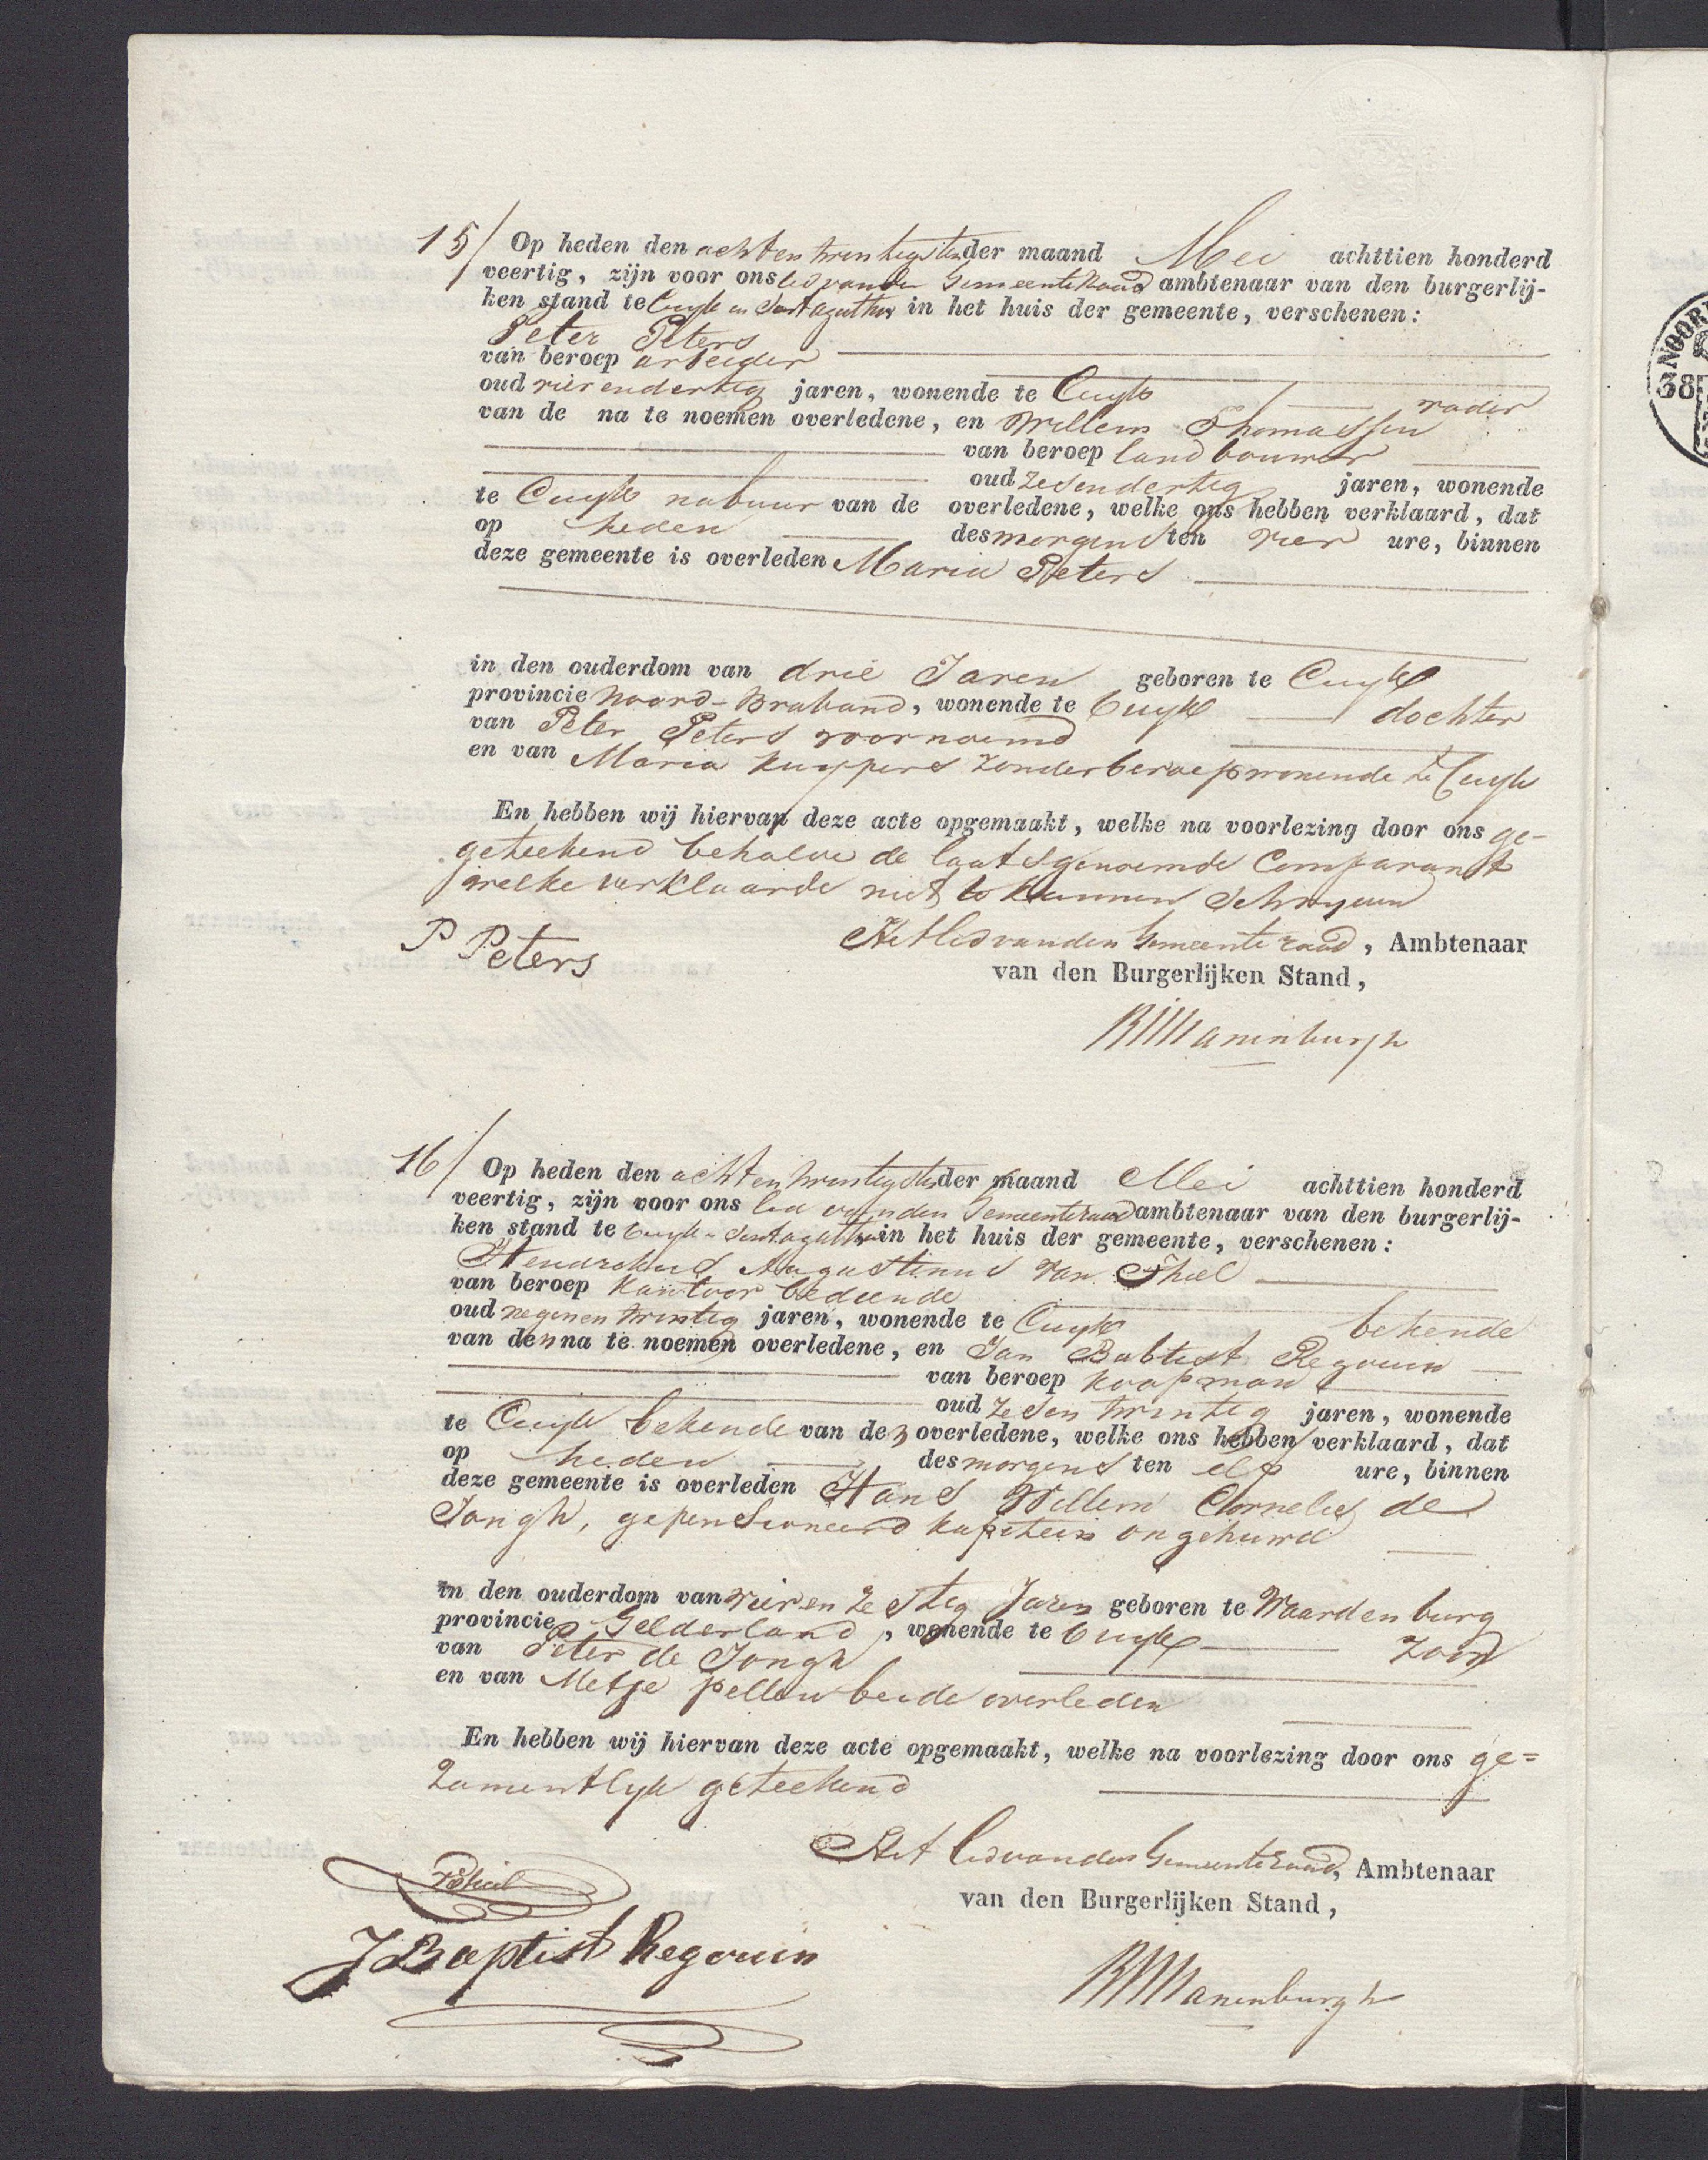 15/ Op heden den achtentwintigsten der maand Mei achttien honderd
veertig, zijn voor ons lid van den Gemeente Raad ambtenaar van den burgerlij-
ken stand te Cuijk en Sint Agatha in het huis der gemeente, verschenen:
Peter Peters
van beroep arbeider
oud vierendertig jaren, wonende te Cuijk vader
van de na te noemen overledene, en Willem Thomassen
van beroep landbouwer
oud zesendertig jaren, wonende
te Cuijk nabuur van de overledene, welke ons hebben verklaard, dat
op heden des morgens ten vier ure, binnen
deze gemeente is overleden Maria Peters
in den ouderdom van drie Jaren geboren te Cuijk
provincie Noord-Braband, wonende te Cuijk dochter
van Peter Peters voornoemd
en van Maria Kuypers zonder beroep wonende te Cuijk
En hebben wij hiervan deze acte opgemaakt, welke na voorlezing door ons ge-
geteekend behalve de laatstgenoemde Comparant
welke verklaarde niet te kunnen Schryven
P Peters
Het lid van den Gemeente raad, Ambtenaar
van den Burgerlijken Stand,
Manenburgh
16/ Op heden den achtentwintigsten der maand Mei achttien honderd
veertig, zijn voor ons lid van den Gemeenteraad ambtenaar van den burgerlij-
ken stand te Cuijk en Sint Agatha in het huis der gemeente, verschenen:
Hendrikus Augustinus van Thiel
van beroep Kantoor bediende
oud negenentwintig jaren, wonende te Cuijk bekende
van den na te noemen overledene, en Jan Babtist Regouin
van beroep Koopman
oud zesentwintig jaren, wonende
te Cuijk bekende van den overledene, welke ons hebben verklaard, dat
op heden des morgens ten elf ure, binnen
deze gemeente is overleden Hans Willem Cornelis de
Jongh, gepensioneerd kapitein ongehuwd
in den ouderdom van vierenzestig Jaren geboren te Waardenburg
provincie Gelderland, wonende te Cuijk zoon
van Peter de Jongh
en van Metje pellen beide overleden
En hebben wij hiervan deze acte opgemaakt, welke na voorlezing door ons ge=
zamentlyk geteekend
Het lid van den Gemeente raad, Ambtenaar
van den Burgerlijken Stand,
VThiel
J Baptist Regouin
Manenburgh
NOOR
38